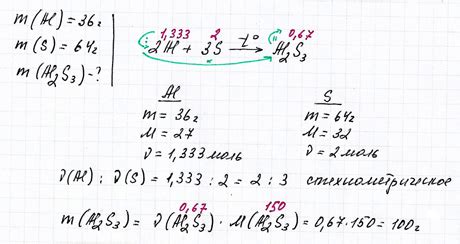 m(Al)=36г
m(S)=64г
m(Al₂S₃)-?
1,333 2 0,67
2Al + 3S —t°→ Al₂S₃
Al
m=36г
M=27
ν=1,333 моль
S
m=64г
M=32
ν=2 моль
ν(Al) : ν(S) = 1,333 : 2 = 2 : 3 стехиометрическое
0,67 150
m(Al₂S₃) = ν(Al₂S₃) · M(Al₂S₃) = 0,67·150=100г